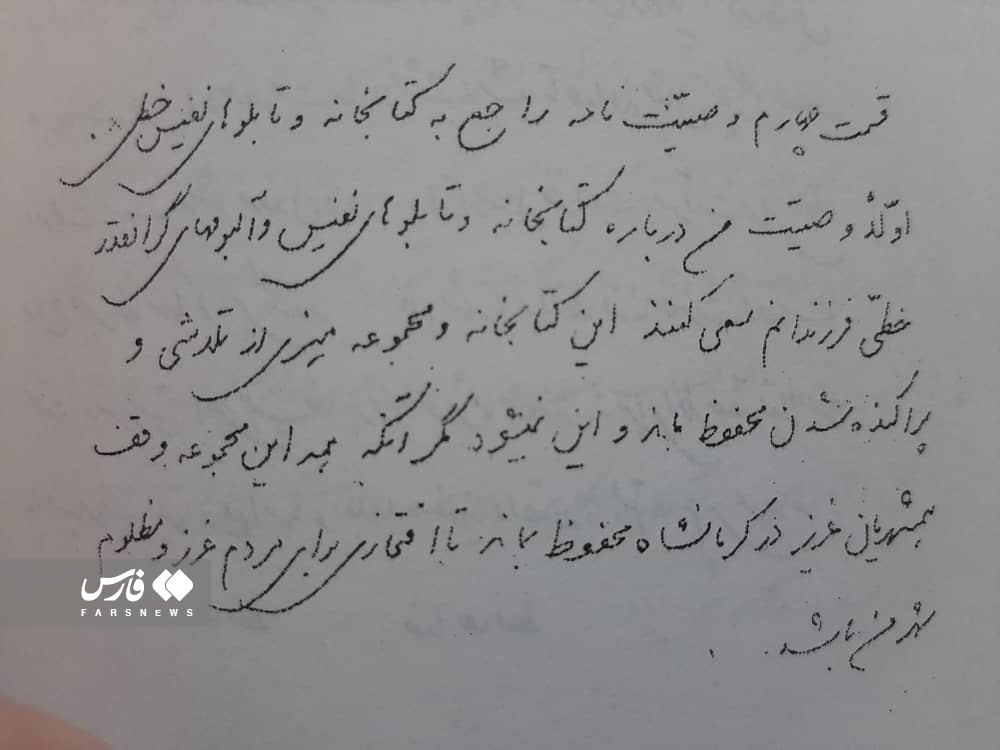 قسمت چهارم وصیّت نامه راجع به کتابخانه و تابلوهای نفیس خطی.
اولاً وصیّت من درباره کتابخانه و تابلوهای نفیس و آلبومهای گرانقدر
خطّی فرزندانم سعی کنند این کتابخانه و مجموعه از تلاشی و
پراکنده شدن محفوظ بماند و این نمیشود مگر آنکه همه این مجموعه وقف
همشهریان عزیز در کرمانشاه محفوظ بماند تا افتخاری برای مردم عزیز و مظلوم
شهر من باشد.
فارس
FARSNEWS